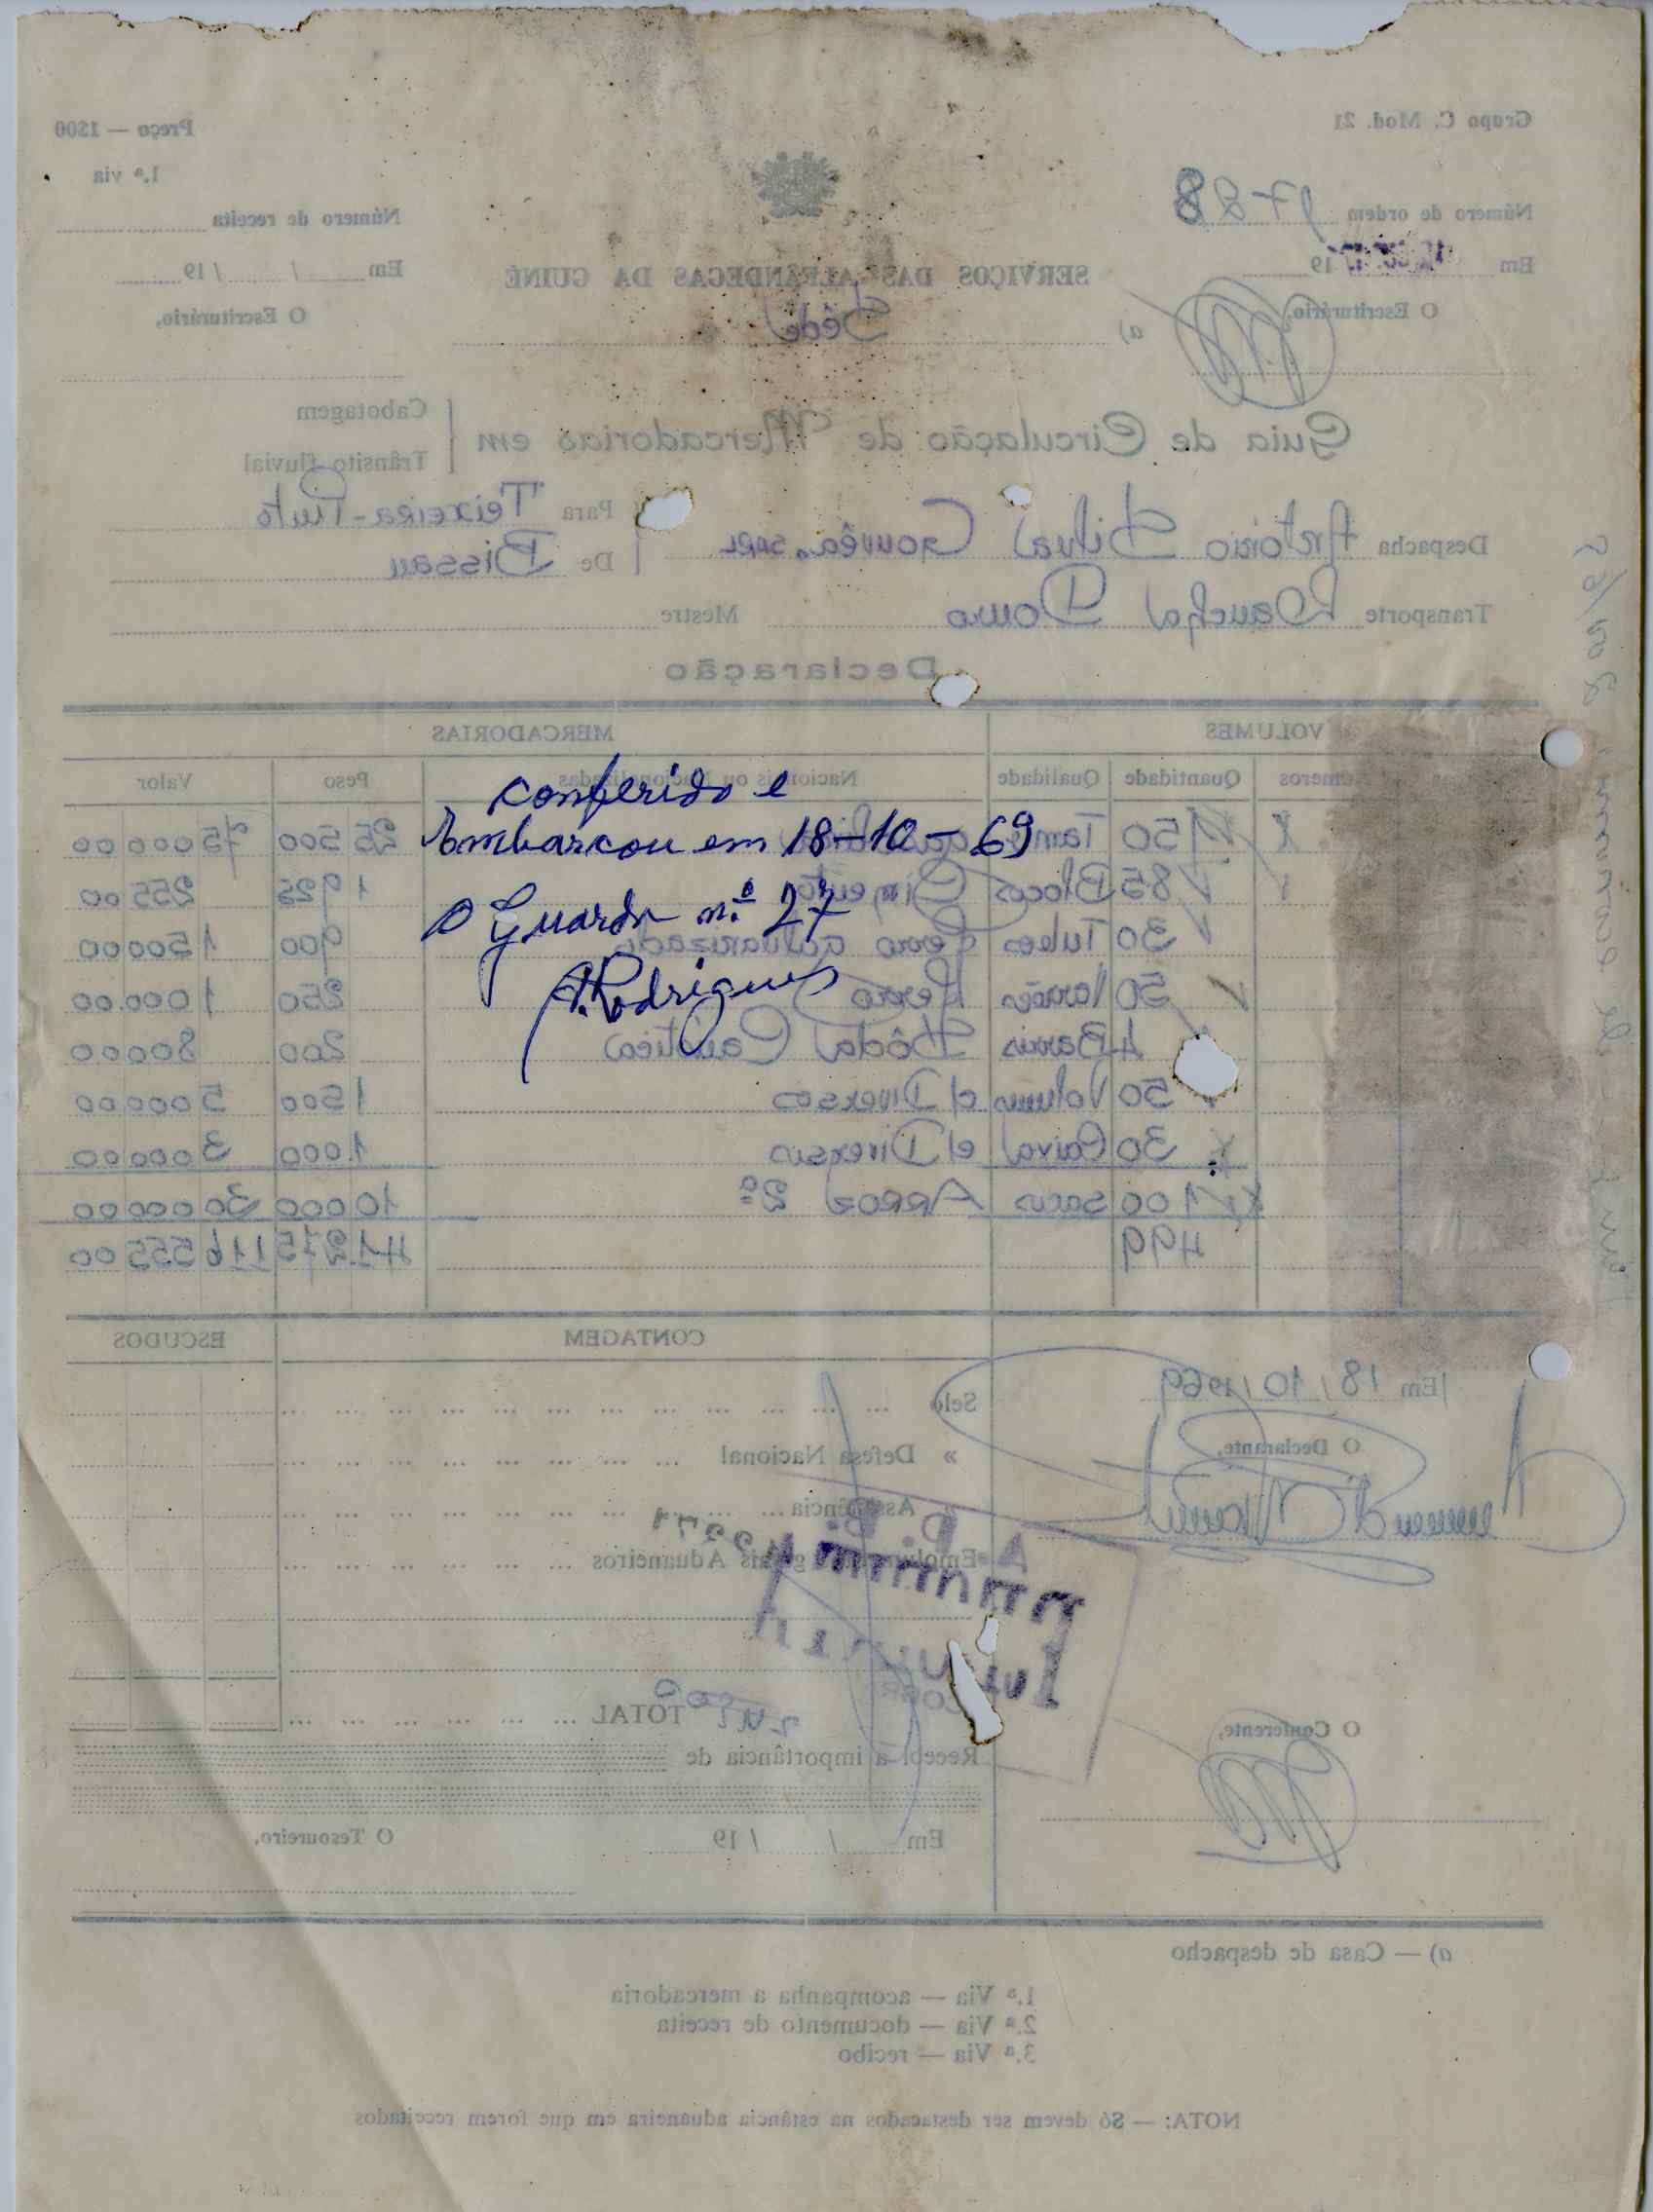 Grupo C. Mod. 21
Preço — 1$00
1.ª via
Número de ordem
Número de receita
Em 19
Em / / 19
O Escriturário,
O Escriturário,
SERVIÇOS DAS ALFÂNDEGAS DA GUINÉ
a) Séde
Guia de Circulação de Mercadorias em
Cabotagem
Trânsito fluvial
Despacha António Silva Gouvêa, SARL
Para Teixeira-Pinto
De Bissau
Transporte Lancha Douro Mestre
Declaração
VOLUMES MERCADORIAS
Quantidade Qualidade Nacionais ou Nacionalizadas Peso Valor
conferido e
Embarcou em 18-10-69
O Guarda n.º 27
A. Rodrigues
150 25 500 75 000 00
85 Blocos Cimento 1 925 255 00
30 Tubos ferro galvanizado 900 1 500 00
50 Varões ferro 250 1 000 00
4 Barris Sóda Caustica 200 800 00
50 Volumes c/ Diversos 1 500 5 000 00
30 Caixa c/ Diversos 1.000 3 000 00
100 sacos Arroz 2ª 10 000 30 000 00
499 41 275 116 555 00
CONTAGEM ESCUDOS
Em 18/10/1969
O Declarante,
Selo
» Defesa Nacional
» Assistência
Emolumentos gerais Aduaneiros
TOTAL
O Conferente,
Recebi a importância de
Em / / 19
O Tesoureiro,
a) — Casa de despacho
1.ª Via — acompanha a mercadoria
2.ª Via — documento de receita
3.ª Via — recibo
NOTA: — Só devem ser destacados na estância aduaneira em que forem receitados